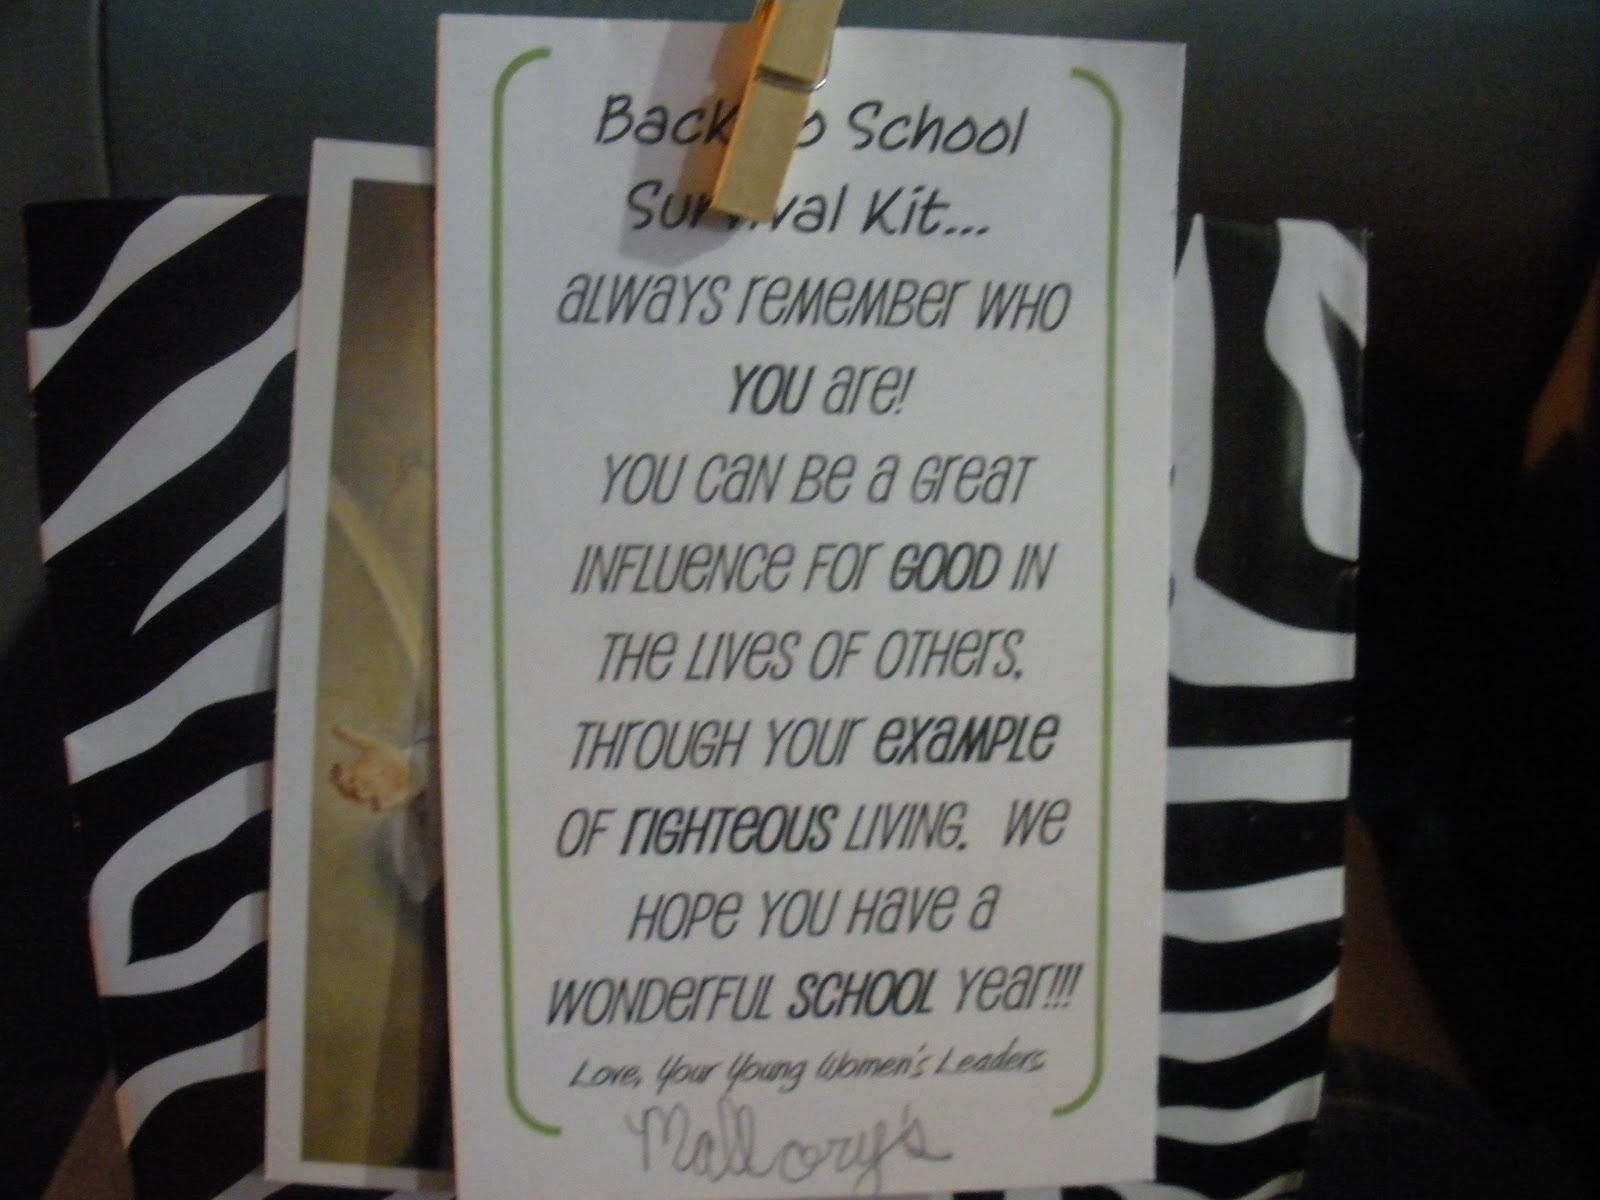 Back to School
Survival Kit...
ALWAYS REMEMBER WHO
YOU are!
YOU CAN BE A GREAT
INFLUENCE FOR GOOD IN
THE LIVES OF OTHERS.
THROUGH YOUR EXAMPLE
OF RIGHTEOUS LIVING. WE
HOPE YOU HAVE A
WONDERFUL SCHOOL YEAR!!!
Love, Your Young Women's Leaders
Mallory's